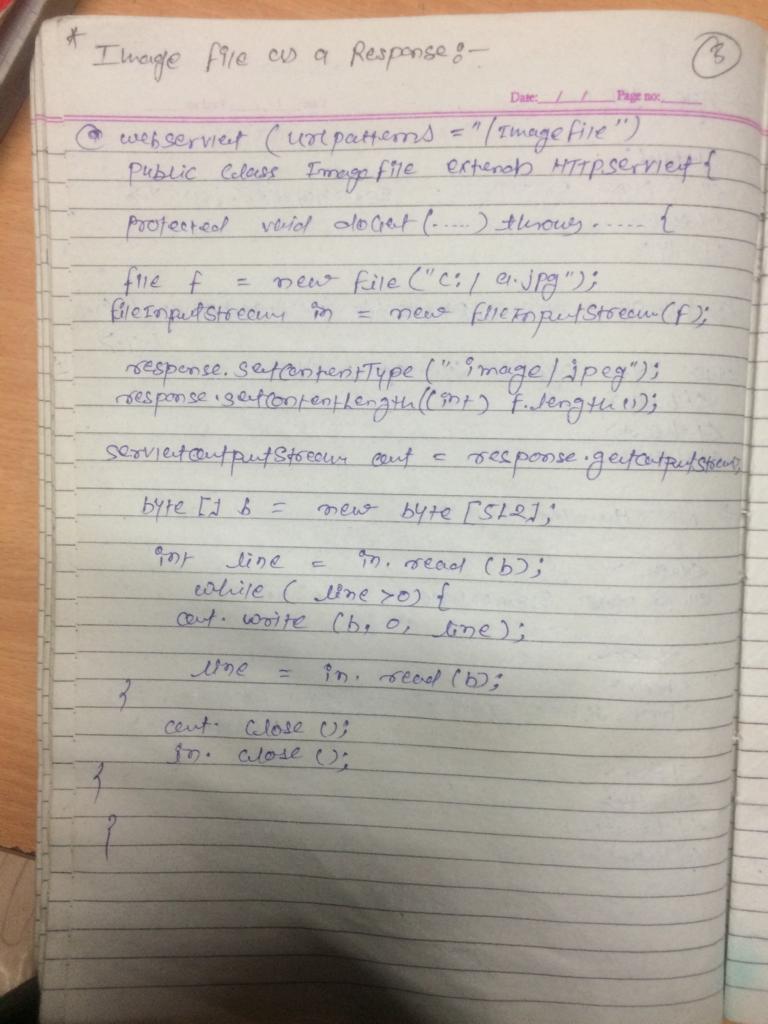 * Image file as a Response:-
3
Date: / / Page no:
@ webservlet (urlpatterns = "/Imagefile")
public class Imagefile extends HTTPservlet {
protected void doGet (.....) throws ..... {
file f = new file ("c:/ a.jpg");
fileInputStream in = new fileInputStream(f);
response.setContentType (" image/jpeg");
response.setContentLength((int) f.length());
servletoutputStream out = response.getoutputStream;
byte [] b = new byte [512];
int line = in. read (b);
while ( line >0) {
out. write (b, 0, line);
line = in. read (b);
}
out. close ();
in. close ();
}
}